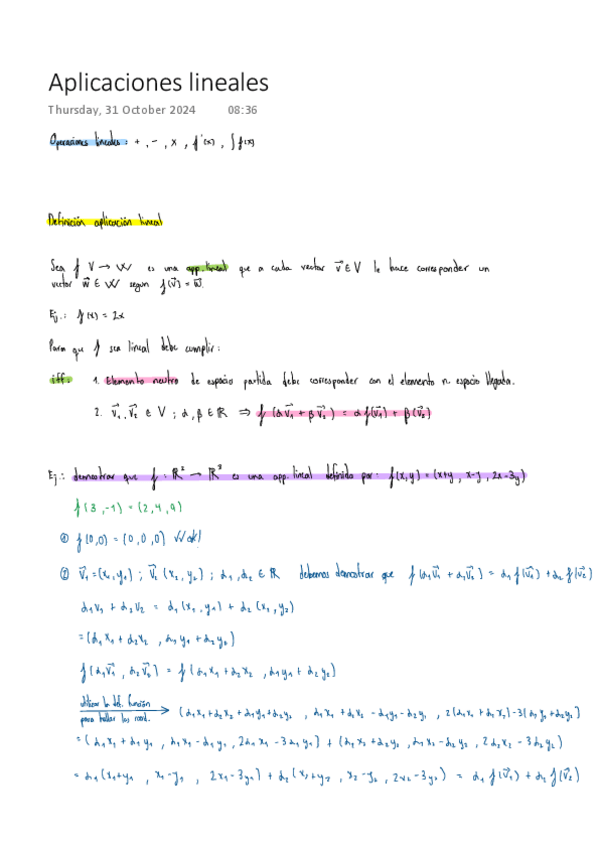 Aplicaciones lineales
Thursday, 31 October 2024 08:36
Operaciones lineales: +, -, x, f'(x), ∫f(x)
Definición aplicación lineal
Sea f V → W es una app. lineal que a cada vector v⃗ ∈ V le hace corresponder un
vector w⃗ ∈ W según f(v⃗) = w⃗.
Ej.: f(x) = 2x
Para que f sea lineal debe cumplir:
iff. 1. Elemento neutro de espacio partida debe corresponder con el elemento n. espacio llegada.
2. v⃗₁, v⃗₂ ∈ V ; α, β ∈ ℝ ⇒ f(αv⃗₁ + βv⃗₂) = αf(v⃗₁) + β(v⃗₂)
Ej.: demostrar que f: ℝ² → ℝ³ es una app. lineal definida por: f(x,y) = (x+y, x-y, 2x-3y)
f(3,-1) = (2,4,9)
① f(0,0) = (0,0,0) Wok!
② v⃗₁=(x₁,y₁) ; v⃗₂(x₂,y₂) ; α₁,α₂ ∈ ℝ debemos demostrar que f(α₁v⃗₁ + α₂v⃗₂) = α₁f(v⃗₁) + α₂f(v⃗₂)
α₁v₁ + α₂v₂ = α₁(x₁,y₁) + α₂(x₂,y₂)
= (α₁x₁ + α₂x₂, α₁y₁ + α₂y₂)
f(α₁v⃗₁, α₂v⃗₂) = f(α₁x₁ + α₂x₂, α₁y₁ + α₂y₂)
utilizar la def. función
para hallar las coord. → (α₁x₁+α₂x₂+α₁y₁+α₂y₂, α₁x₁+α₂x₂-α₁y₁-α₂y₂, 2(α₁x₁+α₂x₂)-3(α₁y₁+α₂y₂))
= (α₁x₁+α₁y₁, α₁x₁-α₁y₁, 2α₁x₁-3α₁y₁) + (α₂x₂+α₂y₂, α₂x₂-α₂y₂, 2α₂x₂-3α₂y₂)
= α₁(x₁+y₁, x₁-y₁, 2x₁-3y₁) + α₂(x₂+y₂, x₂-y₂, 2x₂-3y₂) = α₁f(v⃗₁) + α₂f(v⃗₂)